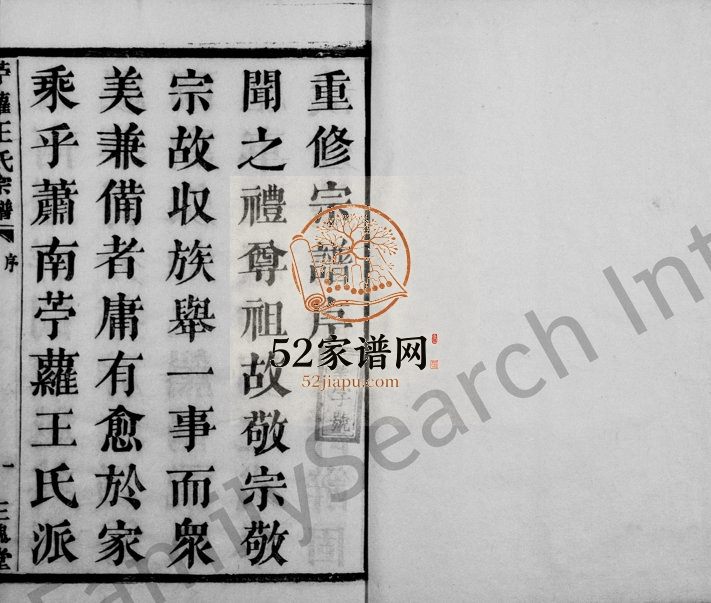 重修宗譜序
聞之禮尊祖故敬宗敬
宗故收族舉一事而衆
美兼備者庸有愈於家
乘乎蕭南苧蘿王氏派
苧蘿王氏宗譜
序
一
三槐堂
字號
52家谱网
52jiapu.com
FamilySearch Int